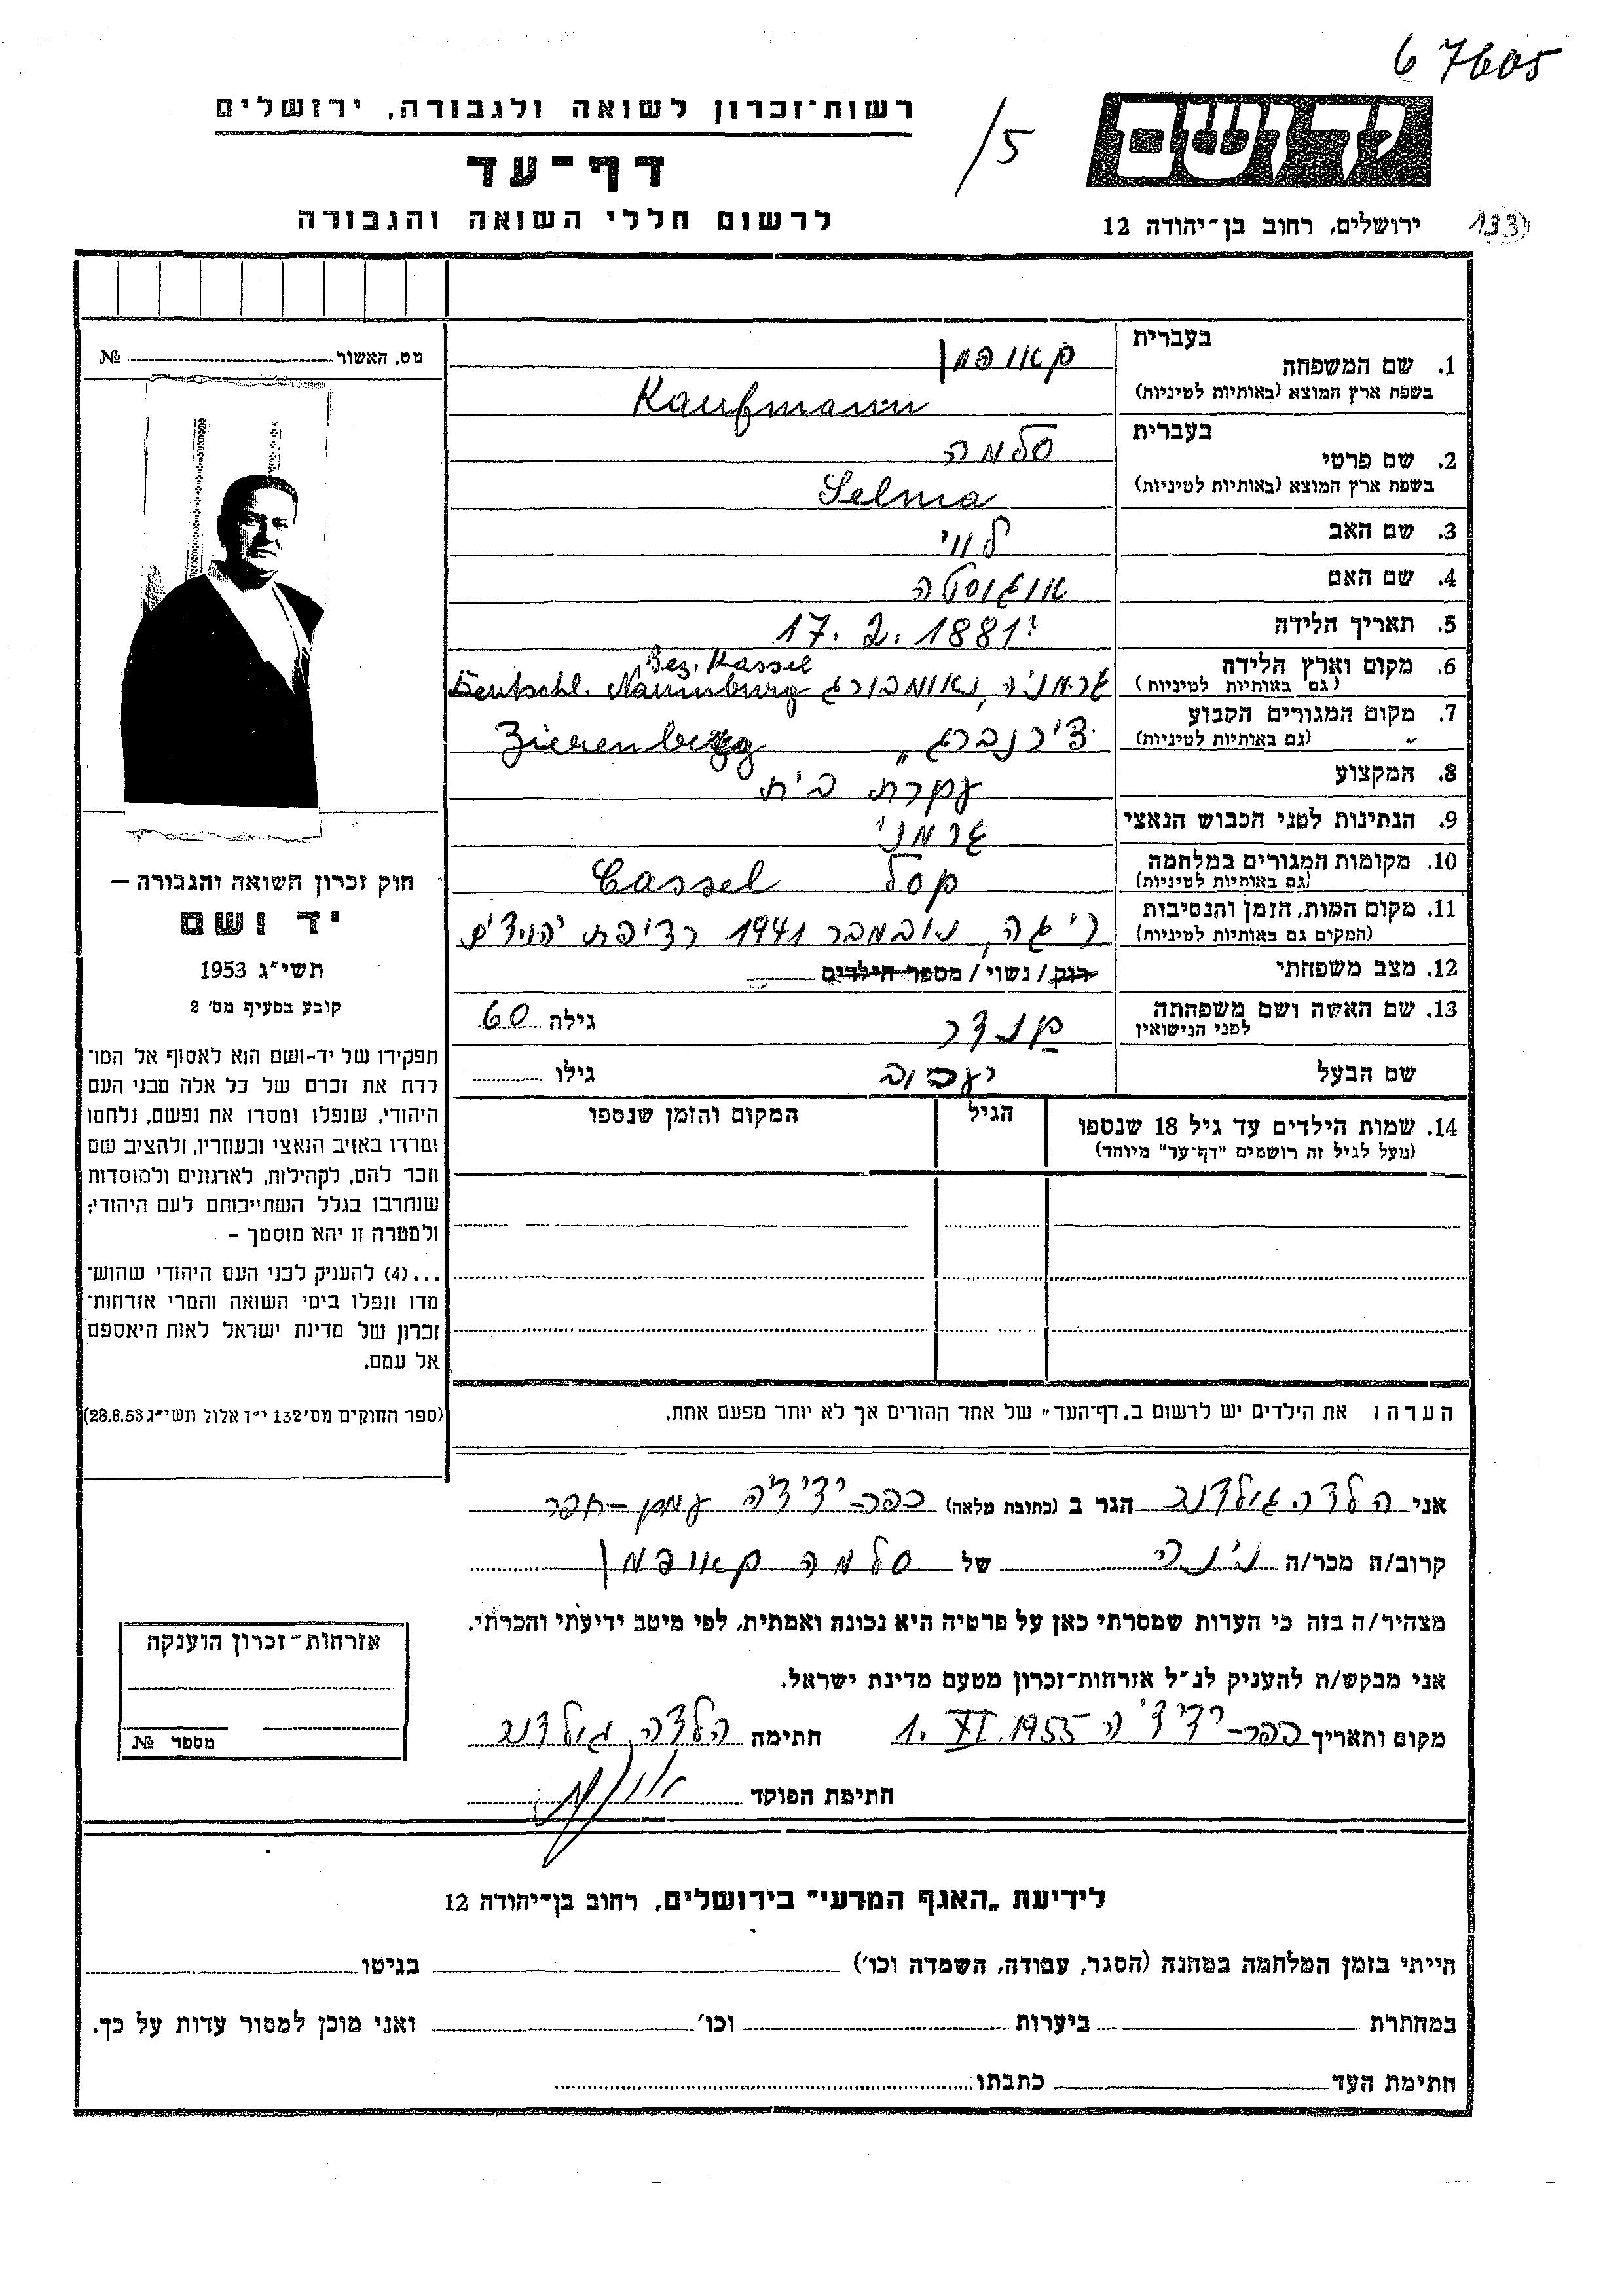 67605
רשות־זכרון לשואה ולגבורה, ירושלים
/5
ידושם
דף־עד
לרשום חללי השואה והגבורה
ירושלים, רחוב בן־יהודה 12
133
מס. האשור № 
בעברית
1. שם המשפחה קאופמן
בשפת ארץ המוצא (באותיות לטיניות) Kaufmann
בעברית
2. שם פרטי סלמה
בשפת ארץ המוצא (באותיות לטיניות) Selma
3. שם האב לווי
4. שם האם אוגוסטה
5. תאריך הלידה 17. 2. 1881
6. מקום וארץ הלידה Bez. Kassel
(גם באותיות לטיניות) גרמניה, נאומבורג Deutschl. Naumburg
7. מקום המגורים הקבוע
(גם באותיות לטיניות) צירנברג Zierenberg
8. המקצוע עקרת בית
9. הנתינות לפני הכבוש הנאצי גרמני
10. מקומות המגורים במלחמה
(גם באותיות לטיניות) קסל Cassel
11. מקום המות, הזמן והנסיבות
(המקום גם באותיות לטיניות) ריגה, נובמבר 1941 רדיפת יהודים
12. מצב משפחתי רוק / נשוי / מספר הילדים
13. שם האשה ושם משפחתה
לפני הנישואין קנדר גילה 60
שם הבעל יעקוב גילו
14. שמות הילדים עד גיל 18 שנספו הגיל המקום והזמן שנספו
(מעל לגיל זה רושמים "דף־עד" מיוחד)
הערה: את הילדים יש לרשום ב"דף־העד" של אחד ההורים אך לא יותר מפעם אחת.
חוק זכרון השואה והגבורה —
יד ושם
תשי"ג 1953
קובע בסעיף מס' 2
תפקידו של יד-ושם הוא לאסוף אל המו־
לדת את זכרם של כל אלה מבני העם
היהודי, שנפלו ומסרו את נפשם, נלחמו
ומרדו באויב הנאצי ובעוזריו, ולהציב שם
וזכר להם, לקהילות, לארגונים ולמוסדות
שנחרבו בגלל השתייכותם לעם היהודי;
ולמטרה זו יהא מוסמך –
...(4) להעניק לבני העם היהודי שהוש־
מדו ונפלו בימי השואה והמרי אזרחות־
זכרון של מדינת ישראל לאות היאספם
אל עמם.
(ספר החוקים מס' 132 י"ז אלול תשי"ג 28.8.53)
אני הלדה גולדנב הגר ב (כתובת מלאה) כפר-ידידיה עמק-חפר
קרוב/ה מכר/ה נינה של סלמה קאופמן
מצהיר/ה בזה כי העדות שמסרתי כאן על פרטיה היא נכונה ואמתית, לפי מיטב ידיעתי והכרתי.
אני מבקש/ת להעניק לנ"ל אזרחות-זכרון מטעם מדינת ישראל.
מקום ותאריך כפר-ידידיה 1. XI. 1955 חתימה הלדה גולדנב
חתימת הפוקד
אזרחות־זכרון הוענקה
מספר №
לידיעת "האגף המדעי" בירושלים, רחוב בן־יהודה 12
הייתי בזמן המלחמה במחנה (הסגר, עבודה, השמדה וכו') בגיטו
במחתרת ביערות וכו' ואני מוכן למסור עדות על כך.
חתימת העד כתבתו